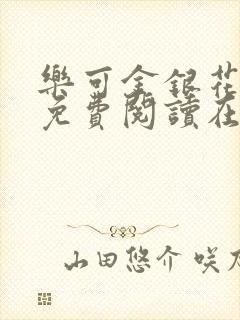 樂可金銀花
免費閱讀在
山田悠介 咲